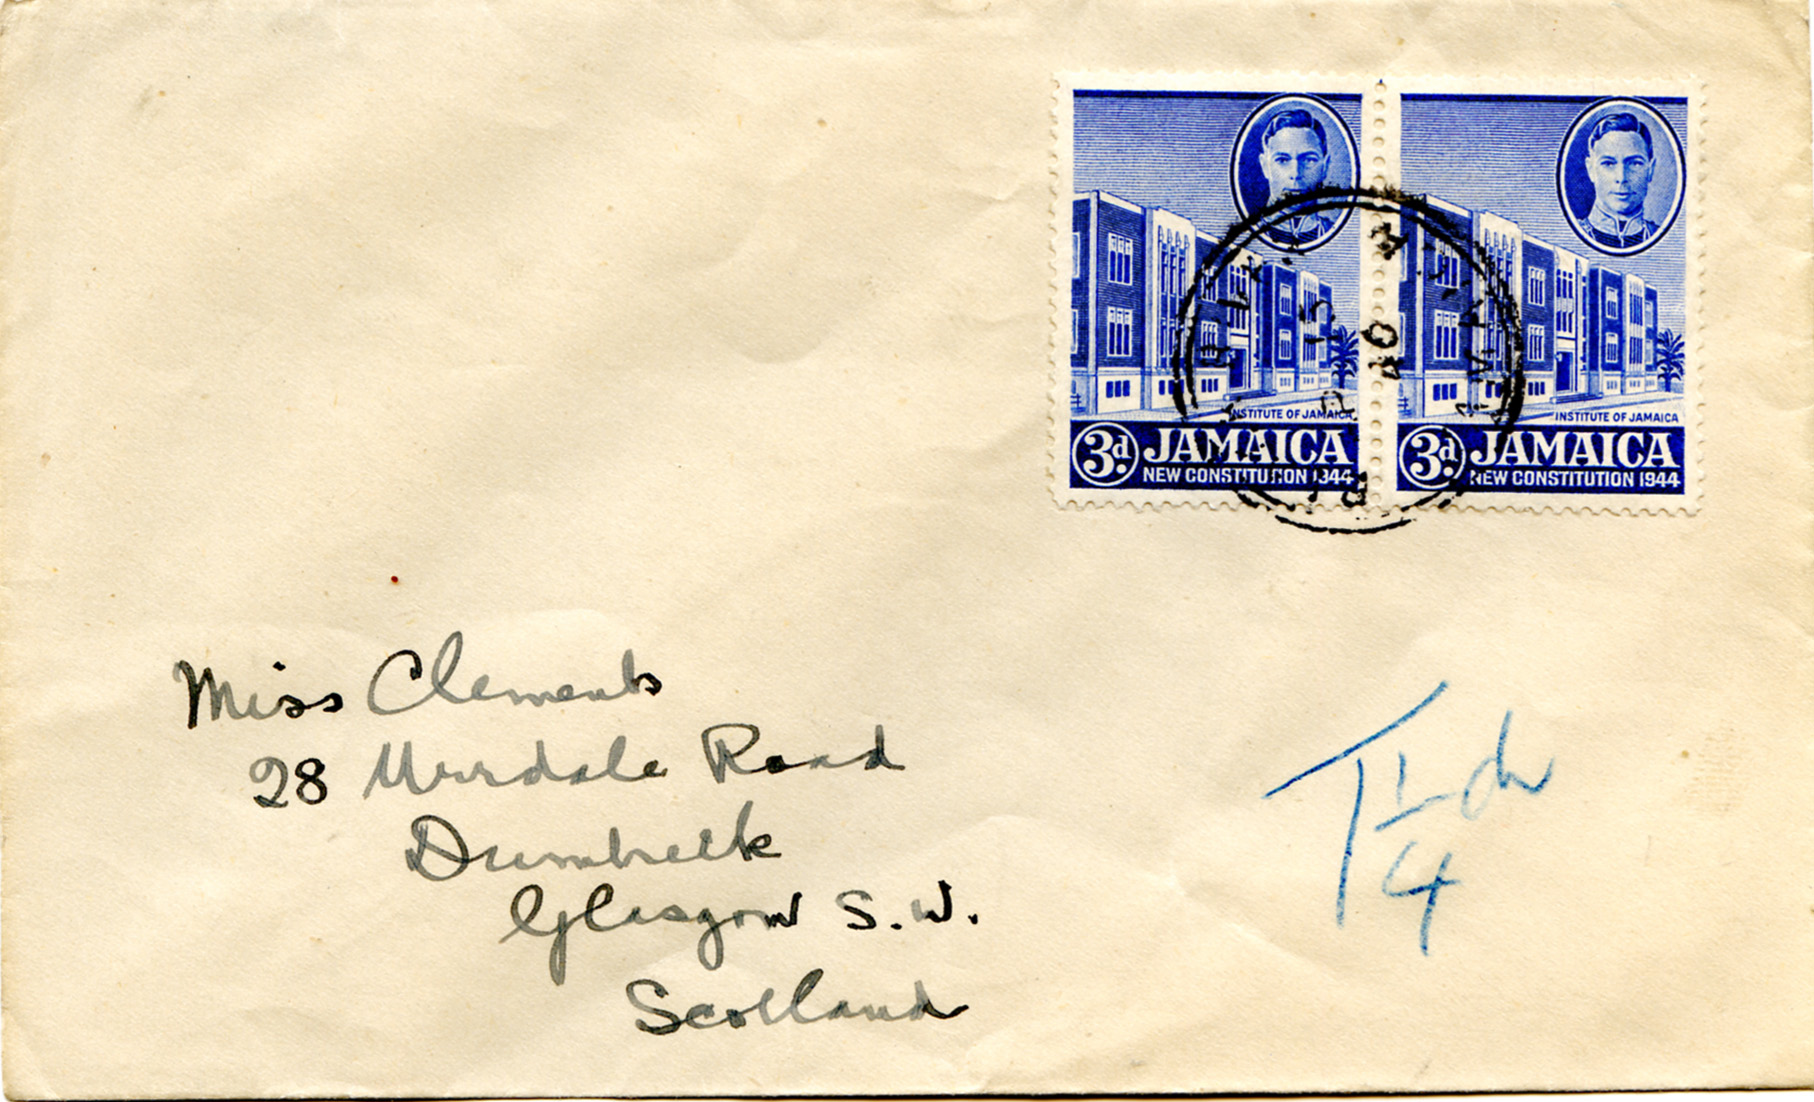 INSTITUTE OF JAMAICA
3d. JAMAICA
NEW CONSTITUTION 1944
INSTITUTE OF JAMAICA
3d. JAMAICA
NEW CONSTITUTION 1944
Miss Clements
28 Road
Dumbreck
Glasgow S.W.
Scotland
T 1/4 d